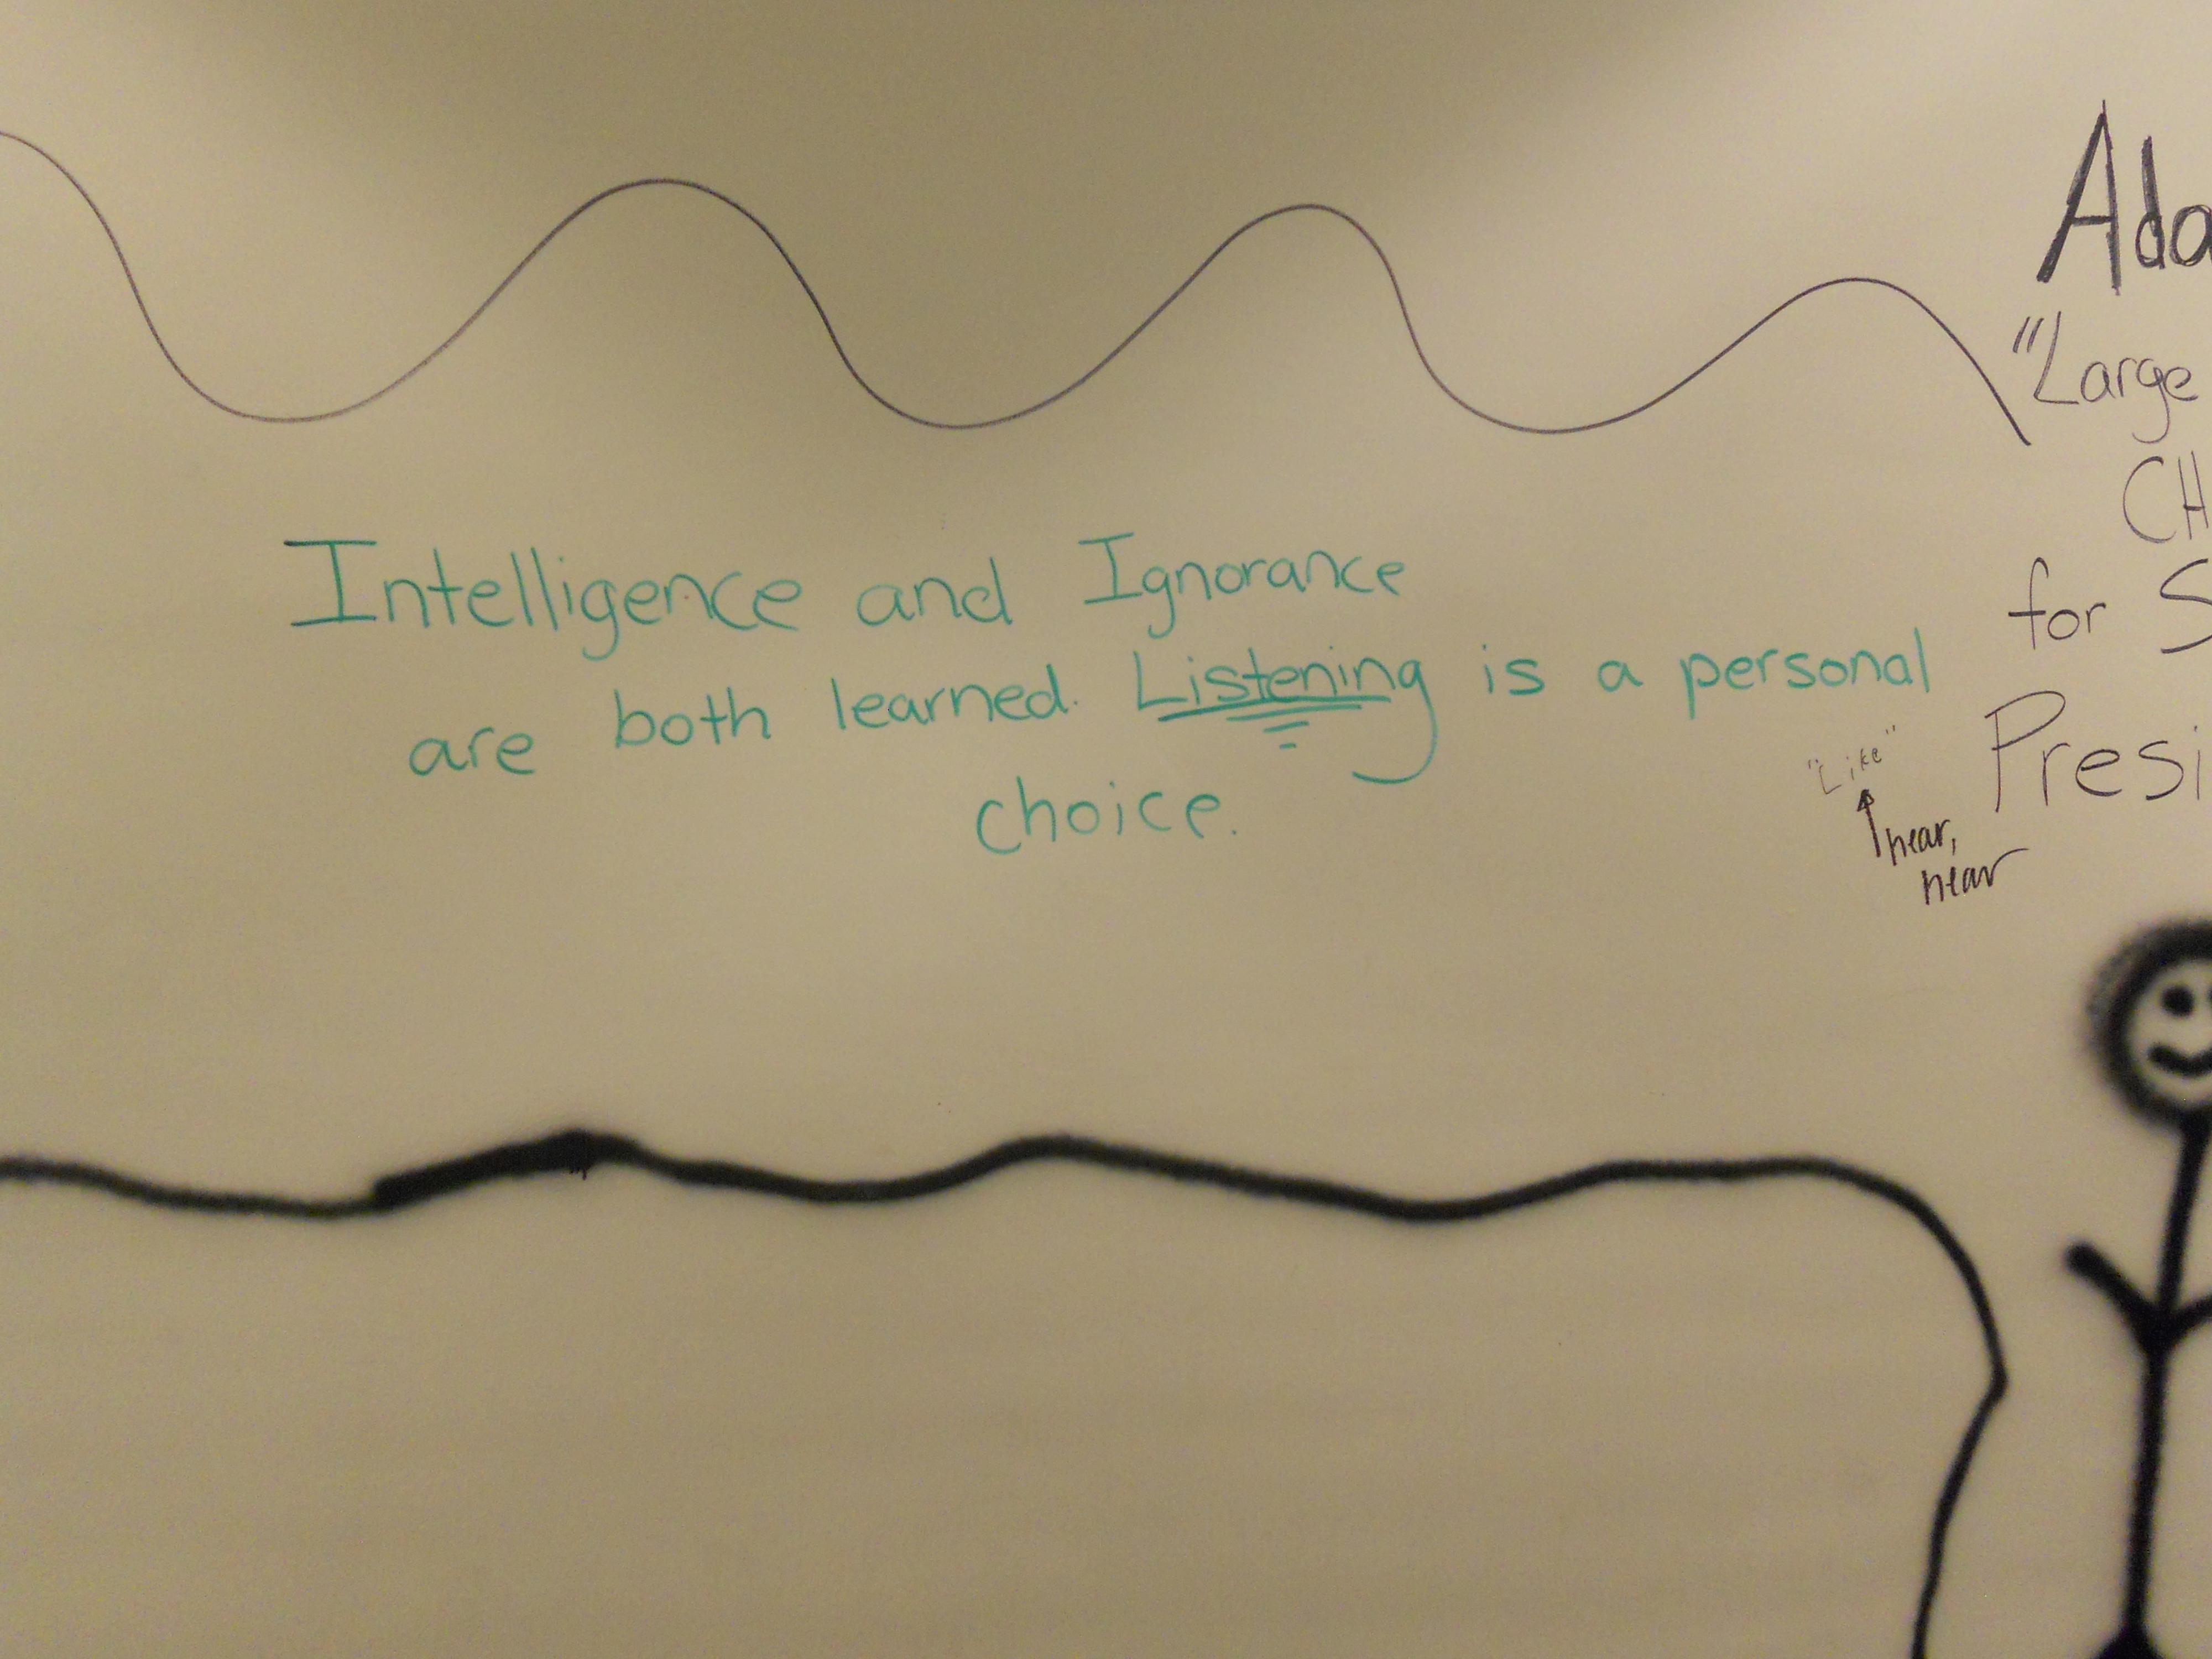 Intelligence and Ignorance
are both learned. Listening is a personal
choice.
"Like"
hear,
hear
Ada
"Large
CH
for S
Presi